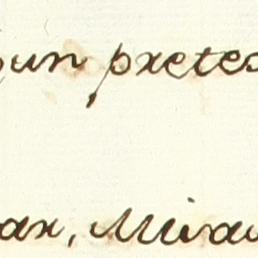 un pretes
ar, Mira